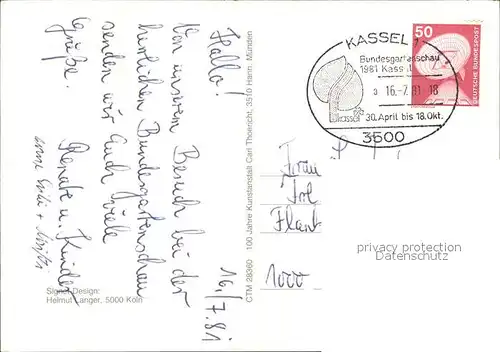 16./7.81
Hallo!
Von unserem Besuch bei der
herrlichen Bundesgartenschau
senden wir Euch viele
Grüße.
Renate u. Kinder
Signet Design:
Helmut Langer, 5000 Köln
CTM 28360 100 Jahre Kunstanstalt Carl Thoericht, 3510 Hann. Münden
KASSEL 1
Bundesgartenschau
1981 Kassel
a 16.-7.81 18
30. April bis 18. Okt.
3500
50
DEUTSCHE BUNDESPOST
Frau
1000
privacy protection
Datenschutz